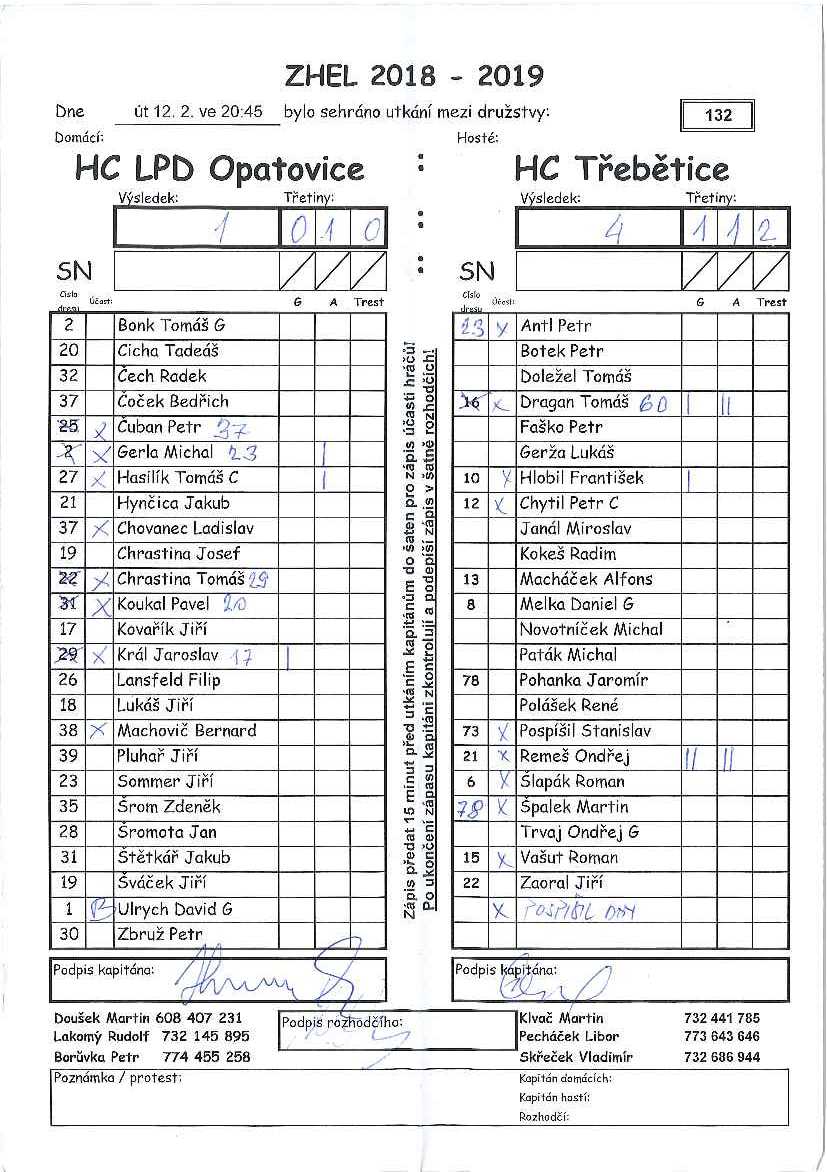 ZHEL 2018 - 2019
Dne út 12. 2. ve 20:45 bylo sehráno utkání mezi družstvy: 132
Domácí: Hosté:
HC LPD Opatovice : HC Třebětice
Výsledek: Třetiny: Výsledek: Třetiny:
1 0 1 0 : 4 1 1 2
SN : SN
Číslo dresu Účast: G A Trest Číslo dresu Účast: G A Trest
2 Bonk Tomáš G
20 Cicha Tadeáš
32 Čech Radek
37 Čoček Bedřich
25 X Čuban Petr 37
2 X Gerla Michal 23 |
27 X Hasilík Tomáš C |
21 Hynčica Jakub
37 X Chovanec Ladislav
19 Chrastina Josef
22 X Chrastina Tomáš 29
31 X Koukal Pavel 20
17 Kovařík Jiří
29 X Král Jaroslav 17 |
26 Lansfeld Filip
18 Lukáš Jiří
38 X Machovič Bernard
39 Pluhař Jiří
23 Sommer Jiří
35 Šrom Zdeněk
28 Šromota Jan
31 Štětkář Jakub
19 Šváček Jiří
1 B Ulrych David G
30 Zbruž Petr
Zápis předat 15 minut před utkáním kapitánům do šaten pro zápis účasti hráčů!
Po ukončení zápasu kapitáni zkontrolují a podepíší zápis v šatně rozhodčích!
23 X Antl Petr
Botek Petr
Doležel Tomáš
16 X Dragan Tomáš 60 | ||
Faško Petr
Gerža Lukáš
10 X Hlobil František |
12 X Chytil Petr C
Janál Miroslav
Kokeš Radim
13 Macháček Alfons
8 Melka Daniel G
Novotníček Michal
Paták Michal
78 Pohanka Jaromír
Polášek René
73 X Pospíšil Stanislav
21 X Remeš Ondřej || ||
6 X Šlapák Roman
78 X Špalek Martin
Trvaj Ondřej G
15 X Vašut Roman
22 Zaoral Jiří
X POSPÍŠIL
Podpis kapitána: Podpis kapitána:
Doušek Martin 608 407 231
Lakomý Rudolf 732 145 895
Borůvka Petr 774 455 258
Podpis rozhodčího:
Klvač Martin 732 441 785
Pecháček Libor 773 643 646
Skřeček Vladimír 732 686 944
Poznámka / protest:
Kapitán domácích:
Kapitán hostí:
Rozhodčí: